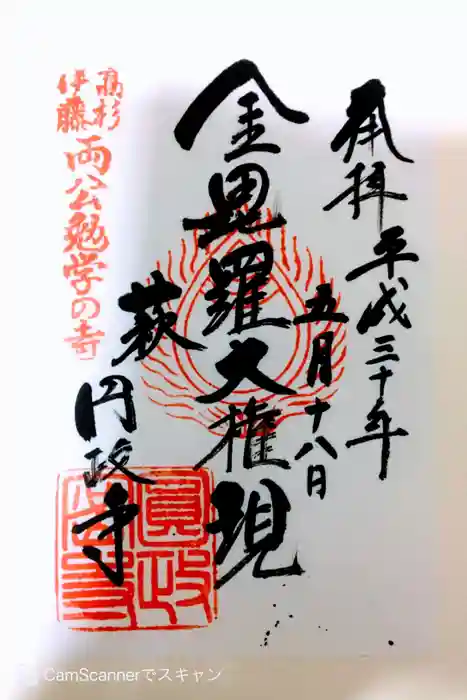 奉拝
平成三十年
五月十八日
金毘羅大権現
萩
円政寺
高杉
伊藤
両公勉学の寺
CamScannerでスキャン